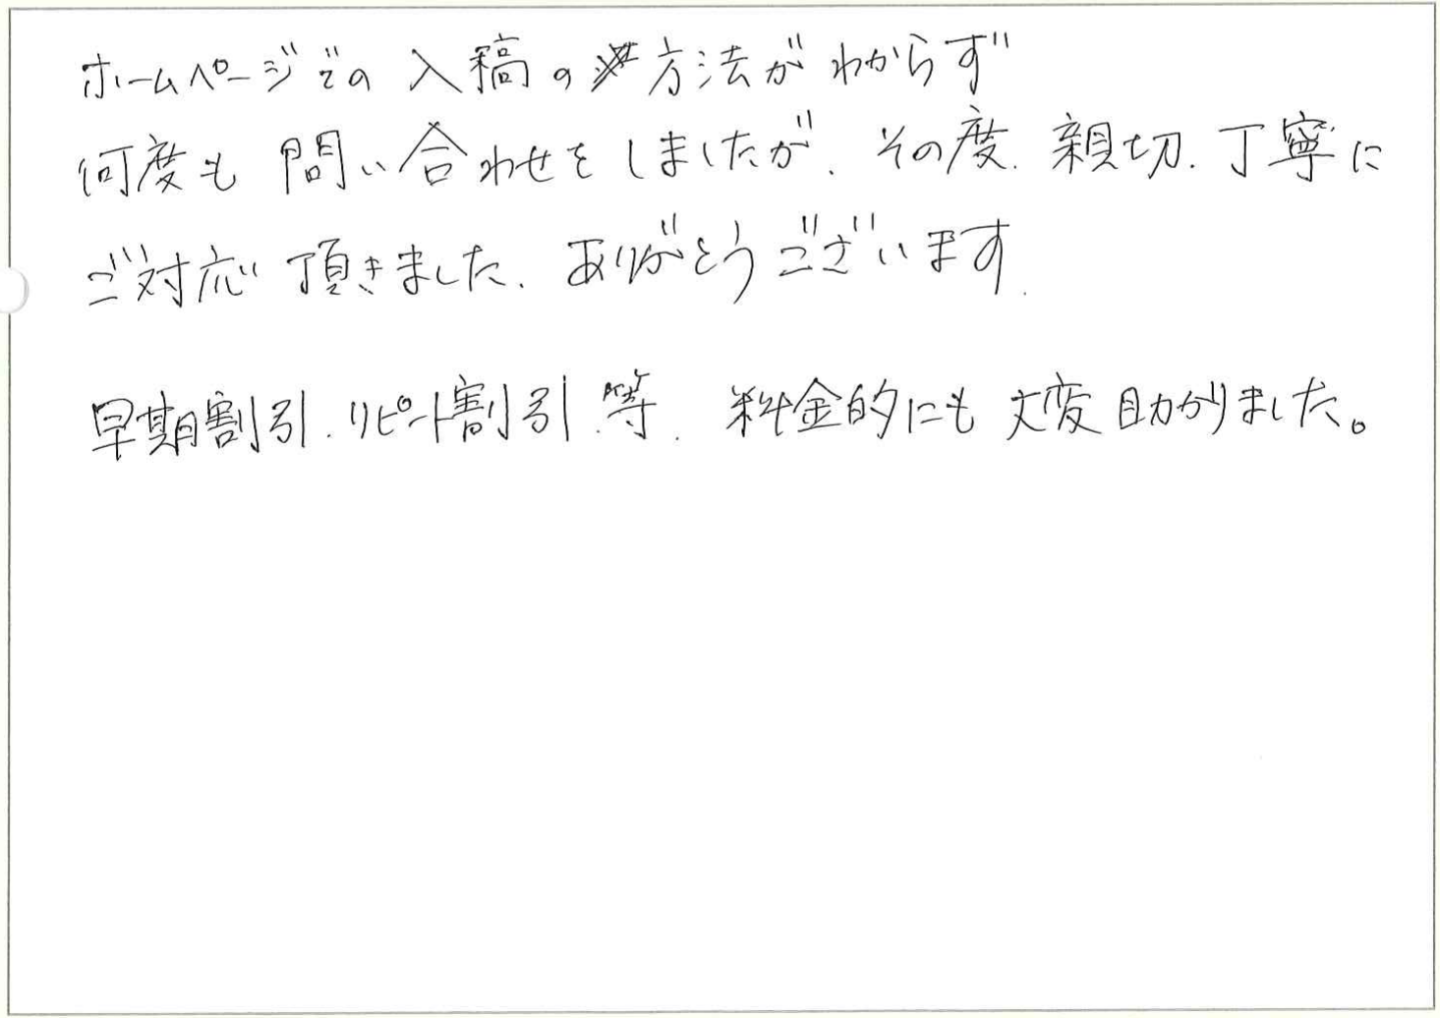 ホームページでの入稿の方法がわからず
何度も問い合わせをしましたが、その度、親切、丁寧に
ご対応頂きました、ありがとうございます.
早期割引、リピート割引、等、料金的にも大変助かりました。